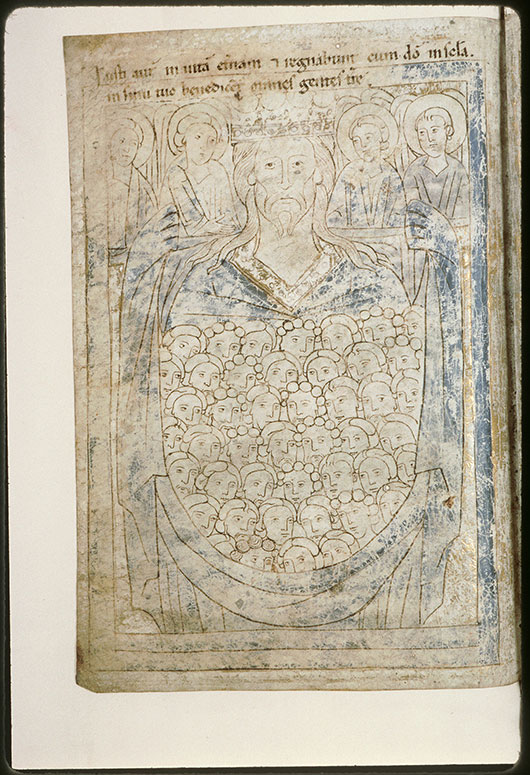 Iusti aut in uitā etnam ⁊ regnabunt cum dō in scła.
in sinu tuo benedicēt omnes gentes tre